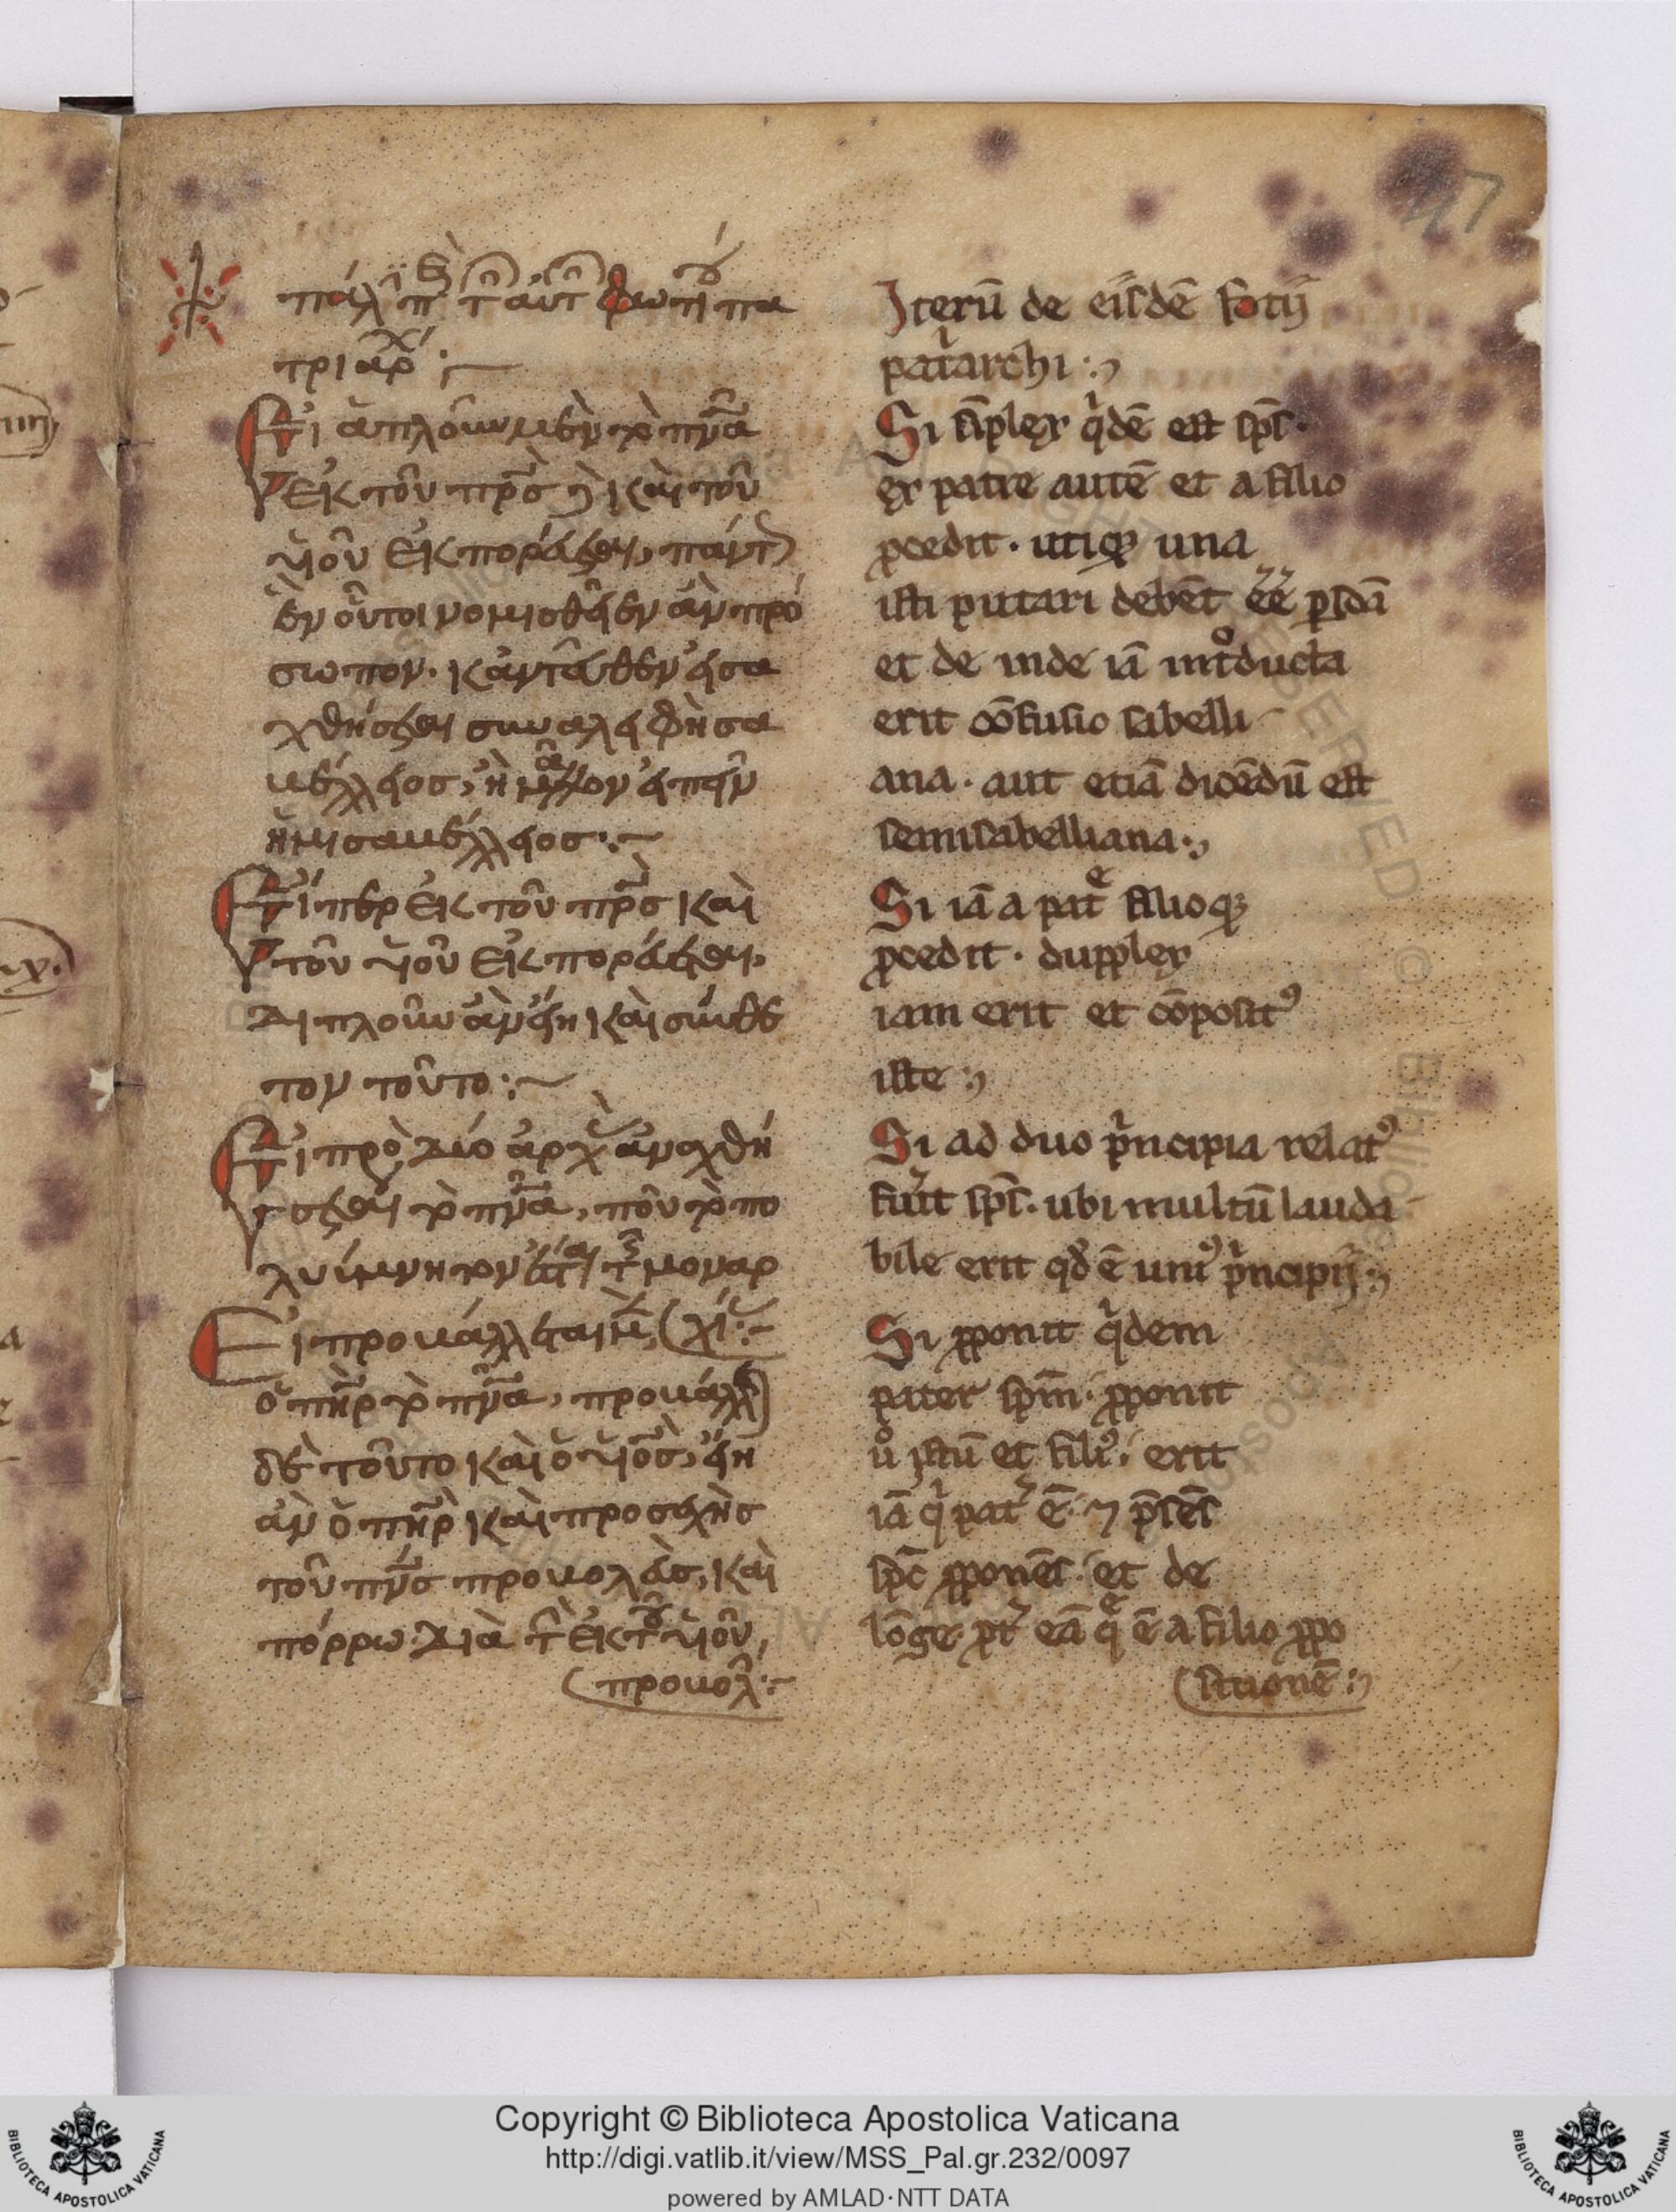 47
πάλιν περὶ τῶν αὐτῶν φωτίου πα
τριάρχ :
Εἰ ἁπλοῦν μὲν τὸ πνᾶ
ἐκ τοῦ πρσ δὲ καὶ τοῦ
υἱοῦ ἐκπορεύεται, πάντως
ἓν οὗτοι νομισθεῖεν ἂν πρό
σωπον. κἀντεῦθεν εἰσα
χθήσεται συναλειφὴ σα
βέλλειος, ἢ μᾶλλον εἰπεῖν
ἡμισαβέλλειος :
Εἴπερ ἐκ τοῦ πρσ καὶ
τοῦ υἱοῦ ἐκπορεύεται,
διπλοῦν ἂν εἴη καὶ σύνθε
τον τοῦτο :
Εἰ πρὸς δύο ἀρχὰς ἀνεχθή
σεται τὸ πνᾶ, ποῦ τὸ πο
λυύμνητον ἔσται τῆς μοναρ
χίας :
Εἰ προβάλλεται μὲν
ὁ πηρ τὸ πνᾶ, προβάλλει
δὲ τοῦτο καὶ ὁ υἱός, εἴη
ἂν ὁ πηρ καὶ προσεχὴς
τοῦ πνσ προβολεὺς, καὶ
πόρρω διὰ τὴν ἐκ τοῦ υἱοῦ,
προβολ :
Iterū de eiꝰdē fotij
patarchi :
Si sīplex qdē est sp̄s.
ex patre autē et a filio
ꝓcedit. utiqꝫ una
isti putari debēt ēē ꝑsōa
et de inde iā int͛ducta
erit cōfusio sabelli
ana. aut etiā dicēdū est
semisabelliana.
Si iā a patͤ filioqꝫ
ꝓcedit. dupplex
iam erit et cōpositꝰ
iste :
Si ad duo pͥncipia relatꝰ
fuͥit sp̄s. ubi multū lauda
bile erit qd̄ ē uniꝰ pͥncipij :
Si ꝓponit qͥdem
pater sp̄m. ꝓponit
uͦ istū et filiꝰ. erit
iā qͥ pat͛ ē. ⁊ p̄sēs
sp̄c ꝓponēs. et de
lōge ꝓpt͛ eā qͤ ē a filio ꝓpo
sitionē :
Copyright © Biblioteca Apostolica Vaticana
http://digi.vatlib.it/view/MSS_Pal.gr.232/0097
powered by AMLAD·NTT DATA
BIBLIOTECA APOSTOLICA VATICANA
BIBLIOTECA APOSTOLICA VATICANA